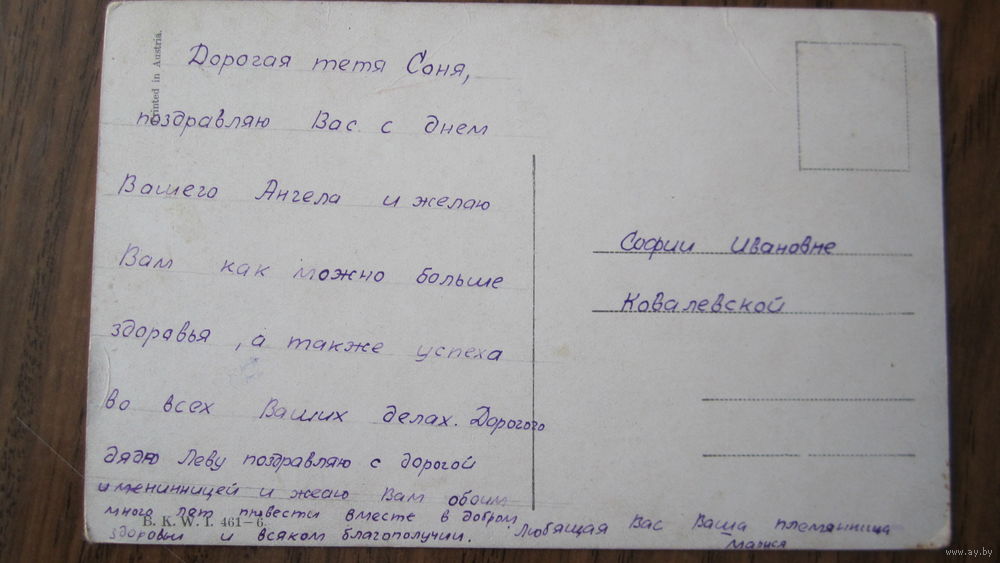 Printed in Austria.
Дорогая тетя Соня,
поздравляю Вас с днем
Вашего Ангела и желаю
Вам как можно больше
здоровья, а также успеха
во всех Ваших делах. Дорогого
дядю Леву поздравляю с дорогой
именинницей и жеаю Вам обоим
много лет привести вместе в добром
здоровьи и всяком благополучии. Любящая Вас Ваша племянница
Маруся
B. K. W. I. 461-6.
Софии Ивановне
Ковалевской
www.ay.by